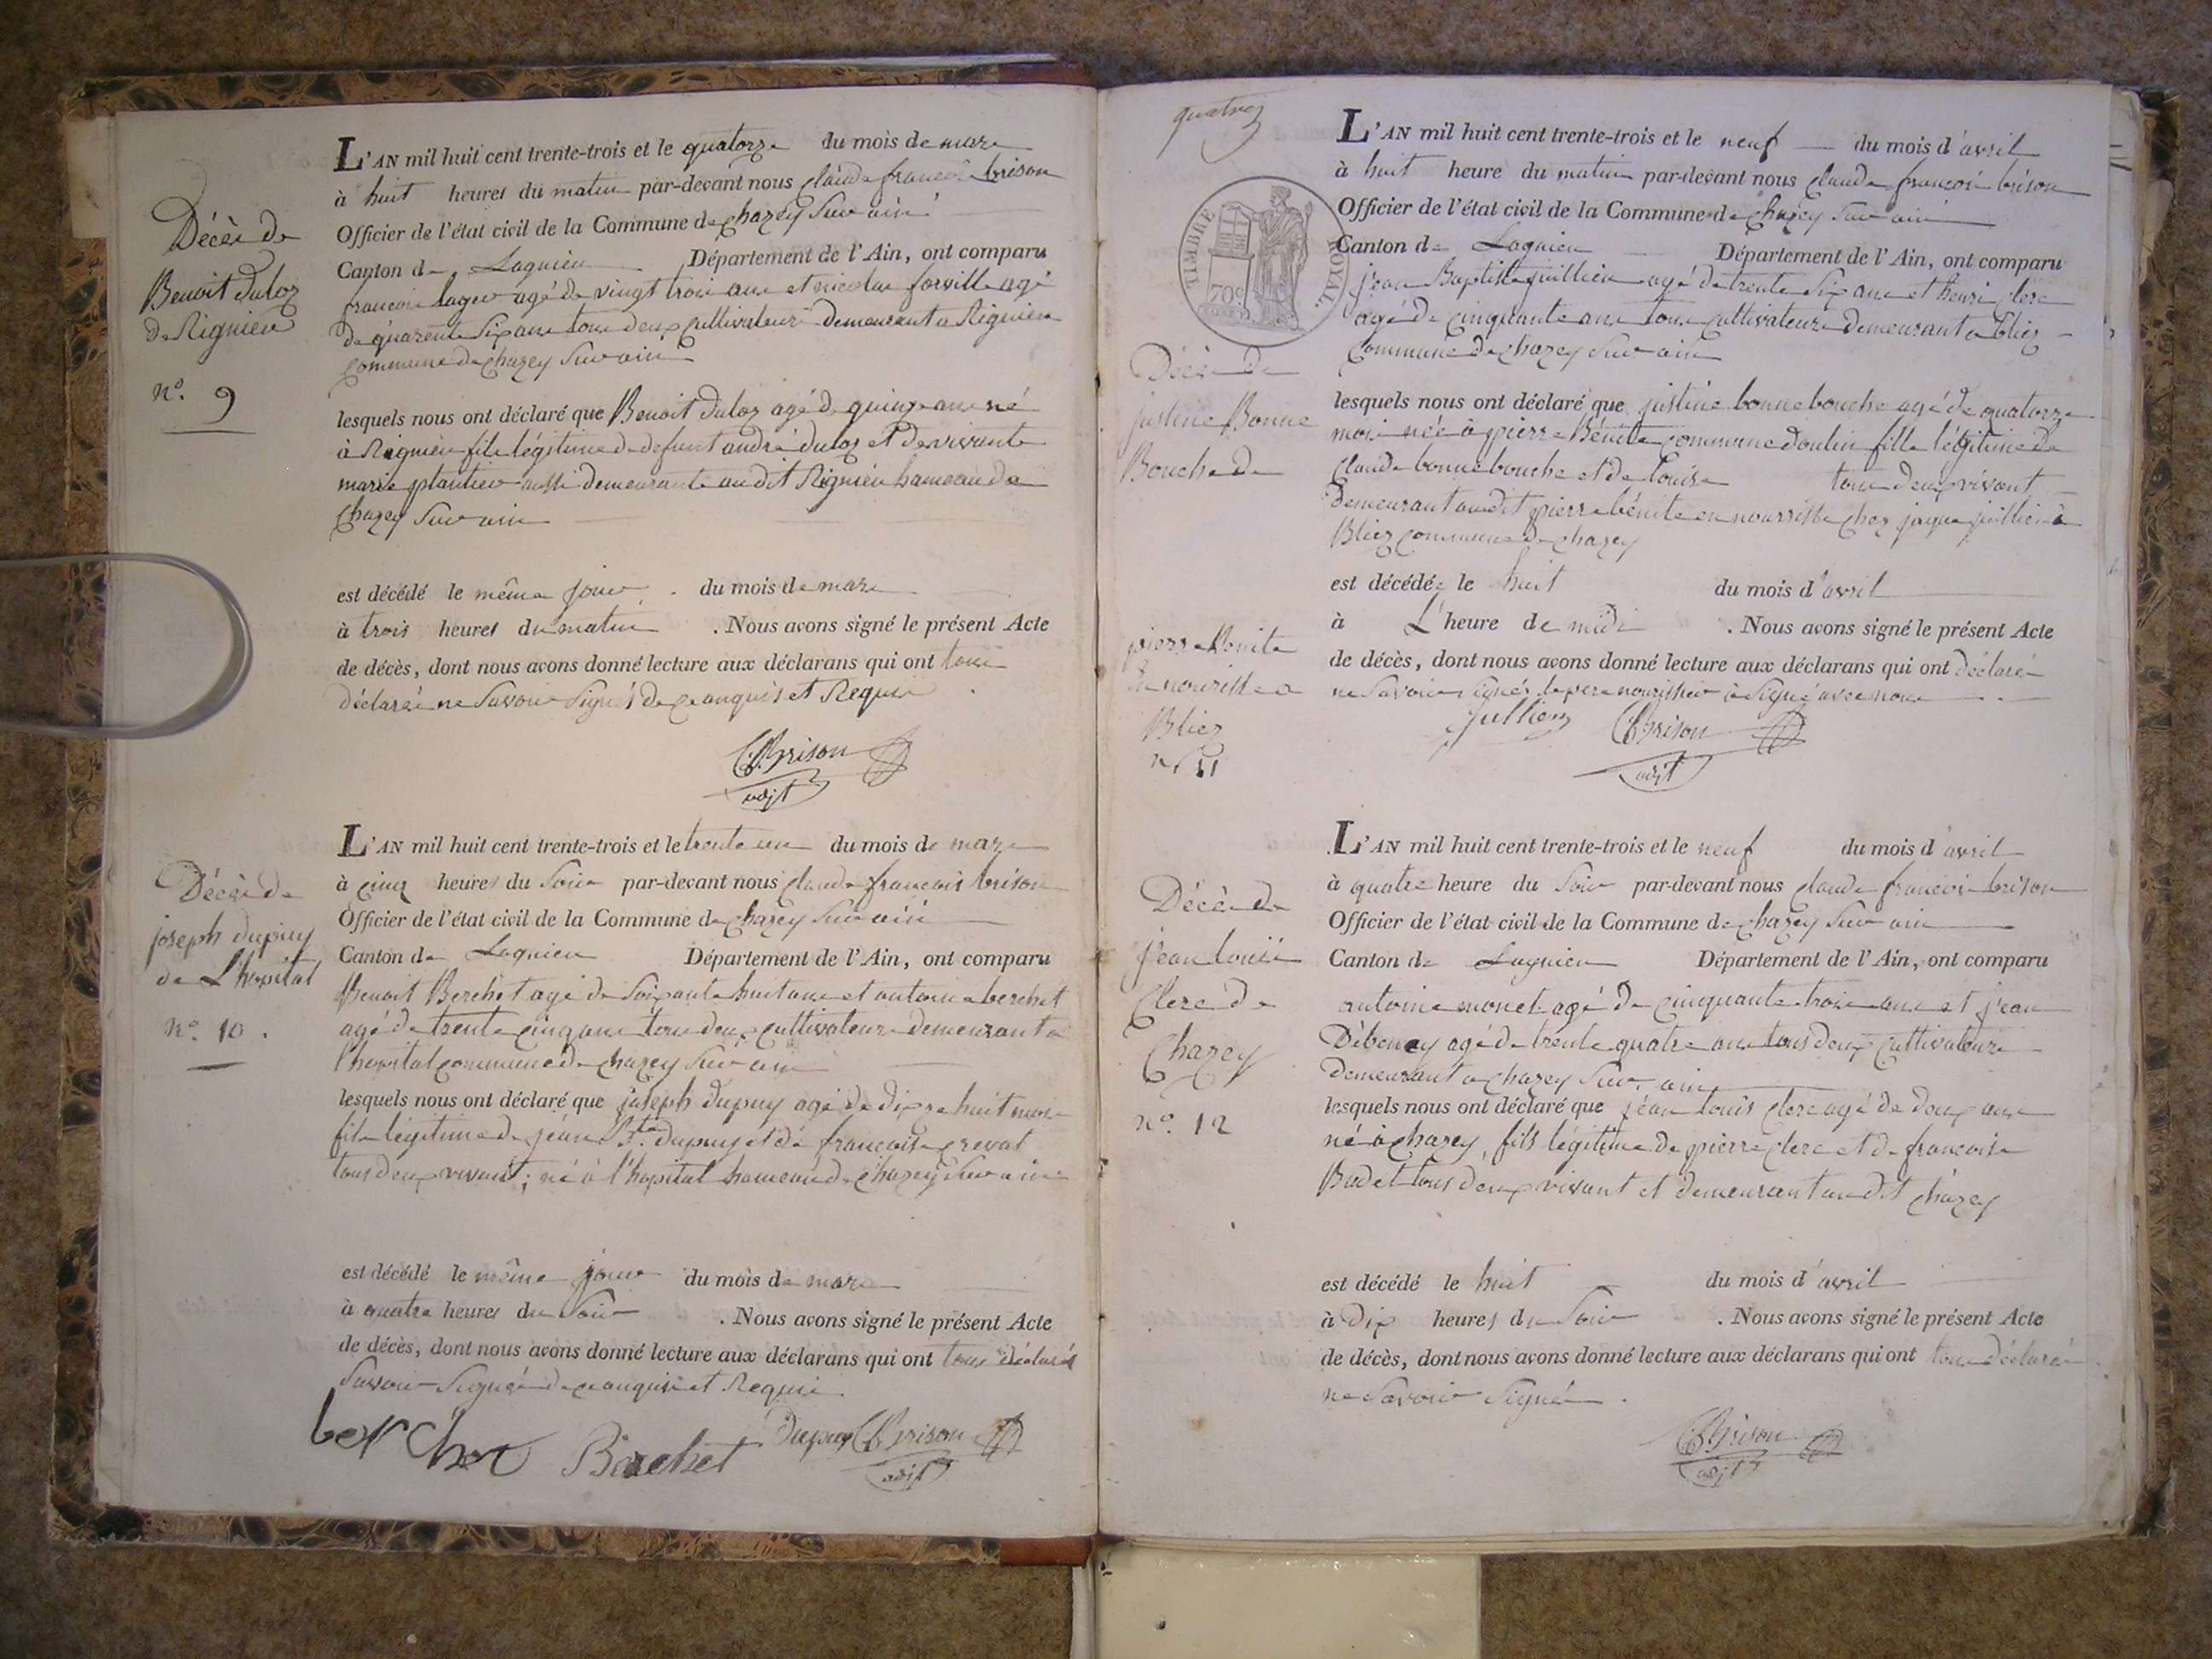 Décès de
Benoit duloz
de Rignieu
n.o 9
L'AN mil huit cent trente-trois et le quatorze du mois de mars
à huit heures du matin par-devant nous claude francois brison
Officier de l'état civil de la Commune de chazey Sur ain
Canton de Lagnieu Département de l'Ain, ont comparu
francois lager agé de vingt trois ans et nicolas forville agé
de quarente Six ans tous deux cultivateurs demeurant a Rignieu
commune de chazey Sur ain
lesquels nous ont déclaré que Benoit duloz agé de quinze ans né
à Rignieu fils légitime de defunt andré duloz et de vivante
marie plantier aussi demeurante au dit Rignieu hameau de
Chazey Sur ain
est décédé le même jour du mois de mars
à trois heures du matin . Nous avons signé le présent Acte
de décès, dont nous avons donné lecture aux déclarans qui ont tous
déclarés ne Savoir Signés de ce enquis et Requis
C.f. Brison
adjt
Décès de
joseph dupuy
de L'hopital
n.o 10.
L'AN mil huit cent trente-trois et le trente un du mois de mars
à cinq heures du Soir par-devant nous claude francois brison
Officier de l'état civil de la Commune de chazey Sur ain
Canton de Lagnieu Département de l'Ain, ont comparu
Benoit Berchet agé de Soixante huit ans et antoine berchet
agé de trente cinq ans tous deux cultivateurs demeurant a
l'hopital commune de chazey Sur ain
lesquels nous ont déclaré que joseph dupuy agé de dix a huit mois
fils légitime de jean Bte dupuy et de francoise crevat
tous deux vivant; né à l'hopital hameau de chazey Sur ain
est décédé le même jour du mois de mars
à quatre heures du Soir . Nous avons signé le présent Acte
de décès, dont nous avons donné lecture aux déclarans qui ont tous déclarés
Savoir Signés de ce enquis et Requis
bercher Berchet Dupuy C.f. Brison
adjt
quatre
TIMBRE ROYAL
70c
Décès de
justine Bonne
Bouche de
pierre Benite
En nourisse a
Bliez
n.o 11
L'AN mil huit cent trente-trois et le neuf du mois d'avril
à huit heure du matin par-devant nous claude francois brison
Officier de l'état civil de la Commune de chazey Sur ain
Canton de Lagnieu Département de l'Ain, ont comparu
jean Baptiste juillien agé de trente Six ans et henri clerc
agé de cinquante ans tous cultivateurs demeurant a bliez
commune de chazey Sur ain
lesquels nous ont déclaré que justine bonnebouche agé de quatorze
mois née à pierre Bénite commune doulin fille légitime de
Claude bonnebouche et de Louise tous deux vivant
demeurant au dit pierre bénite en nourrisse chez jaque juillien à
Bliez commune de chazey
est décédée le huit du mois d'avril
à L'heure de midi . Nous avons signé le présent Acte
de décès, dont nous avons donné lecture aux déclarans qui ont déclaré
ne Savoir Signés le pere nourissier à Signé avec nous
jullien C.f. Brison
adjt
Décès de
jean Louis
Clerc de
Chazey
n.o 12
L'AN mil huit cent trente-trois et le neuf du mois d'avril
à quatre heure du Soir par-devant nous claude francois brison
Officier de l'état civil de la Commune de chazey Sur ain
Canton de Lagnieu Département de l'Ain, ont comparu
antoine monet agé de cinquante trois ans et jean
Débeney agé de trente quatre ans tous deux cultivateurs
demeurant a chazey Sur ain
lesquels nous ont déclaré que jean Louis clerc agé de deux ans
né à chazey, fils légitime de pierre clerc et de francoise
Badet tous deux vivant et demeurant au dit chazey
est décédé le huit du mois d'avril
à dix heures du Soir . Nous avons signé le présent Acte
de décès, dont nous avons donné lecture aux déclarans qui ont tous déclarés
ne Savoir Signés.
C.f. Brison
adjt